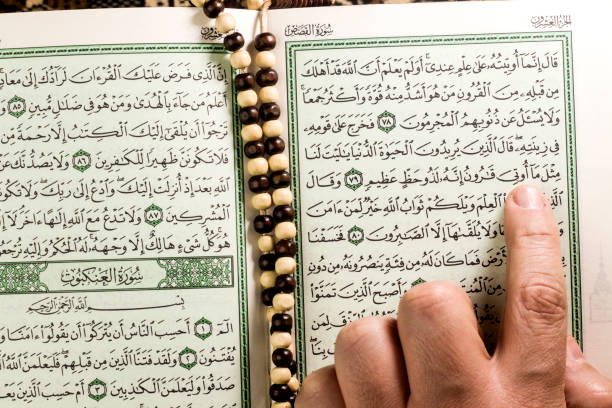 الجزء العشرون سُورَةُ القَصَصِ
قَالَ إِنَّمَآ أُوتِيتُهُۥ عَلَىٰ عِلْمٍ عِندِىٓ أَوَلَمْ يَعْلَمْ أَنَّ ٱللَّهَ قَدْ أَهْلَكَ
مِن قَبْلِهِۦ مِنَ ٱلْقُرُونِ مَنْ هُوَ أَشَدُّ مِنْهُ قُوَّةً وَأَكْثَرُ جَمْعًا
وَلَا يُسْـَٔلُ عَن ذُنُوبِهِمُ ٱلْمُجْرِمُونَ ٧٨ فَخَرَجَ عَلَىٰ قَوْمِهِۦ
فِى زِينَتِهِۦ قَالَ ٱلَّذِينَ يُرِيدُونَ ٱلْحَيَوٰةَ ٱلدُّنْيَا يَٰلَيْتَ لَنَا
مِثْلَ مَآ أُوتِىَ قَٰرُونُ إِنَّهُۥ لَذُو حَظٍّ عَظِيمٍ ٧٩ وَقَالَ
ٱلْعِلْمَ وَيْلَكُمْ ثَوَابُ ٱللَّهِ خَيْرٌ لِّمَنْ ءَامَنَ
وَلَا يُلَقَّىٰهَآ إِلَّا ٱلصَّٰبِرُونَ ٨٠ فَخَسَفْنَا
فَمَا كَانَ لَهُۥ مِن فِئَةٍ يَنصُرُونَهُۥ مِن دُونِ
وَأَصْبَحَ ٱلَّذِينَ تَمَنَّوْا۟
إِنَّ ٱلَّذِى فَرَضَ عَلَيْكَ ٱلْقُرْءَانَ لَرَآدُّكَ إِلَىٰ مَعَادٍ
أَعْلَمُ مَن جَآءَ بِٱلْهُدَىٰ وَمَنْ هُوَ فِى ضَلَٰلٍ مُّبِينٍ ٨٥
تَرْجُوٓا۟ أَن يُلْقَىٰٓ إِلَيْكَ ٱلْكِتَٰبُ إِلَّا رَحْمَةً
فَلَا تَكُونَنَّ ظَهِيرًا لِّلْكَٰفِرِينَ ٨٦ وَلَا يَصُدُّنَّكَ
ٱللَّهِ بَعْدَ إِذْ أُنزِلَتْ إِلَيْكَ وَٱدْعُ إِلَىٰ رَبِّكَ وَلَا تَكُونَنَّ
ٱلْمُشْرِكِينَ ٨٧ وَلَا تَدْعُ مَعَ ٱللَّهِ إِلَٰهًا ءَاخَرَ لَآ
هُوَ كُلُّ شَىْءٍ هَالِكٌ إِلَّا وَجْهَهُۥ لَهُ ٱلْحُكْمُ وَإِلَيْهِ تُرْجَعُونَ
سُورَةُ العَنكَبُوتِ
بِسْمِ ٱللَّهِ ٱلرَّحْمَٰنِ ٱلرَّحِيمِ
الٓمٓ ١ أَحَسِبَ ٱلنَّاسُ أَن يُتْرَكُوٓا۟ أَن يَقُولُوٓا۟ ءَامَنَّا
يُفْتَنُونَ ٢ وَلَقَدْ فَتَنَّا ٱلَّذِينَ مِن قَبْلِهِمْ فَلَيَعْلَمَنَّ ٱللَّهُ
صَدَقُوا۟ وَلَيَعْلَمَنَّ ٱلْكَٰذِبِينَ ٣ أَمْ حَسِبَ ٱلَّذِينَ